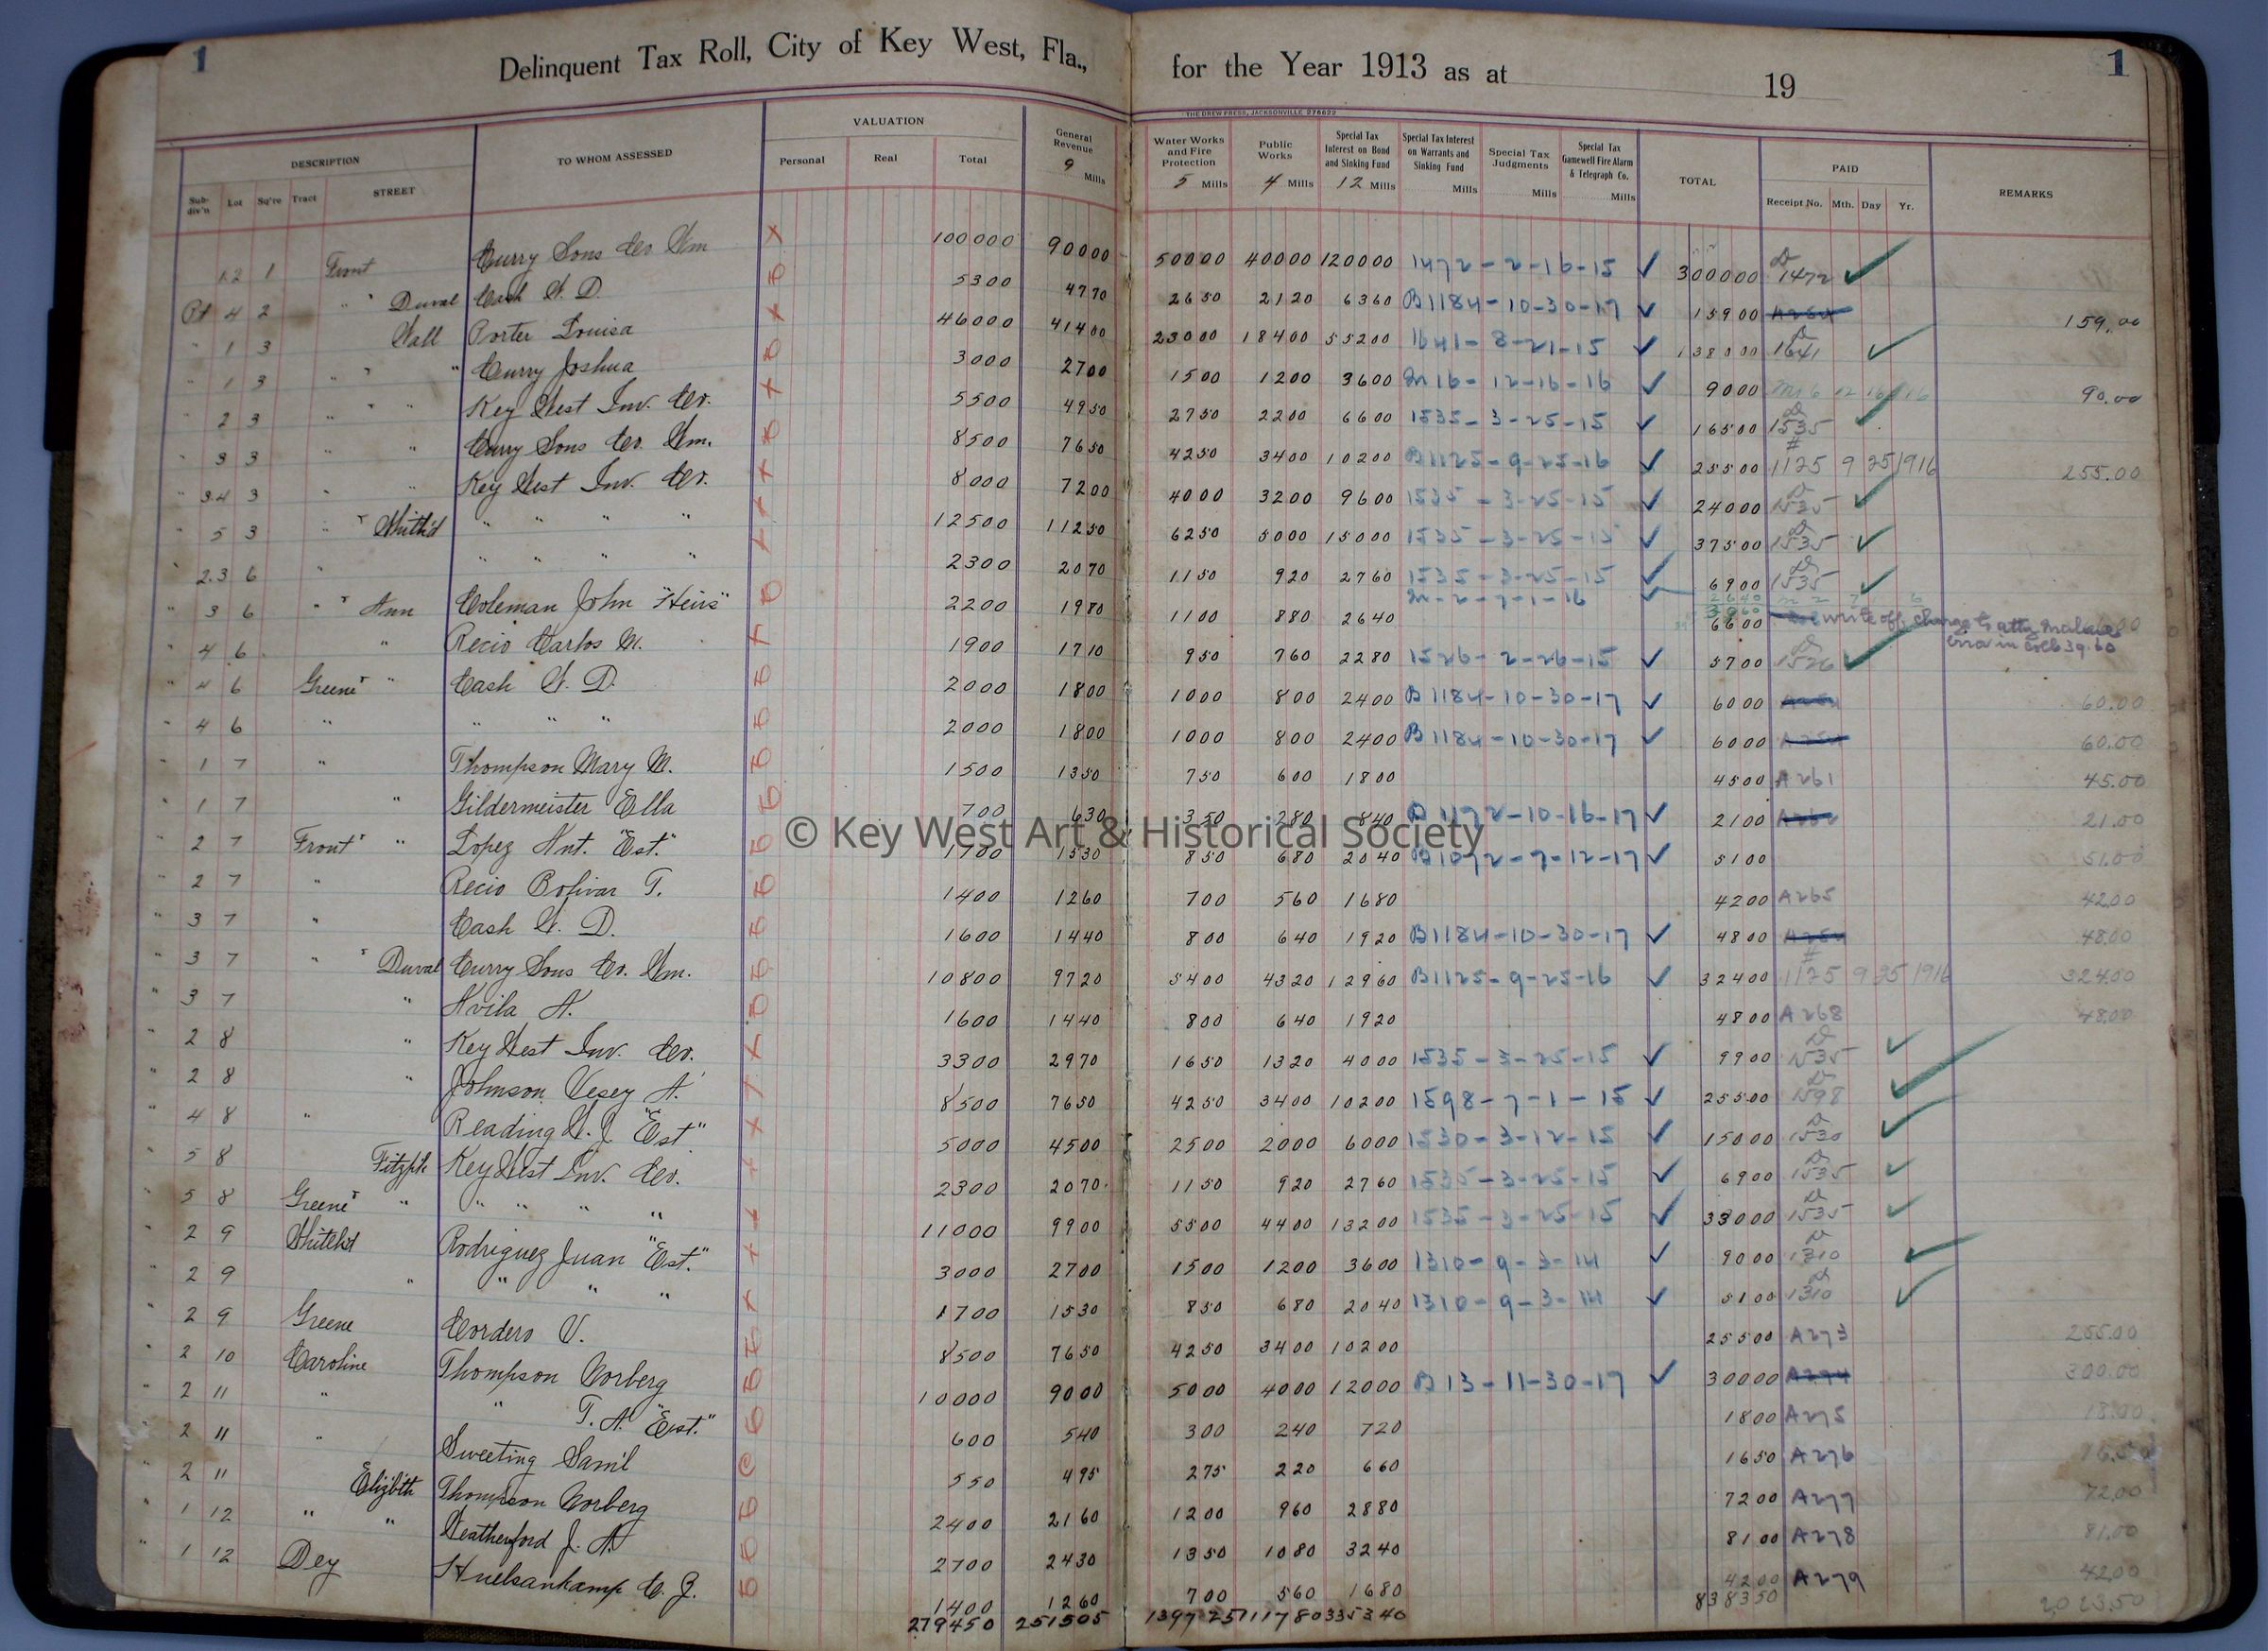 1 Delinquent Tax Roll, City of Key West, Fla., for the Year 1913 as at 19 1
THE DREW PRESS, JACKSONVILLE
DESCRIPTION TO WHOM ASSESSED VALUATION General Revenue 9 Mills Water Works and Fire Protection 5 Mills Public Works 4 Mills Special Tax Interest on Bond and Sinking Fund 12 Mills Special Tax Interest on Warrants and Sinking Fund Mills Special Tax Judgments Mills Special Tax Gamewell Fire Alarm & Telegraph Co. Mills TOTAL PAID REMARKS
Sub-div'n Lot Sq're Tract STREET Personal Real Total Receipt No. Mth. Day Yr.
1.2 1 Front Curry Sons Co Wm X 100000 90000 50000 40000 120000 1472-2-16-15 ✓ 300000 D 1472 ✓
Pt 4 2 " " Duval Cash W. D. 5300 4770 2650 2120 6360 B1184-10-30-17 ✓ 15900 159.00
" 1 3 Wall Porter Louisa X 46000 41400 23000 18400 55200 1641-8-21-15 ✓ 138000 D 1641 ✓
" 1 3 " " " Curry Joshua 3000 2700 1500 1200 3600 M16-12-16-16 ✓ 9000 90.00
" 2 3 " " " Key West Inv. Co. X 5500 4950 2750 2200 6600 1535-3-25-15 ✓ 16500 D 1535 ✓
" 3 3 " " Curry Sons Co. Wm. 8500 7650 4250 3400 10200 B1125-9-25-16 ✓ 25500 # 1125 9 25 1916 255.00
" 3.4 3 " " Key West Inv. Co. X 8000 7200 4000 3200 9600 1535-3-25-15 ✓ 24000 D 1535 ✓
" 5 3 " " Whith'd " " " " X 12500 11250 6250 5000 15000 1535-3-25-15 ✓ 37500 D 1535 ✓
" 2.3 6 " " " " " X 2300 2070 1150 920 2760 1535-3-25-15 ✓ 6900 D 1535 ✓
" 3 6 " " Ann Coleman John "Heirs" 2200 1980 1100 880 2640 M-2-7-1-16 ✓ 2640 3960 6600 write off, charge to atty Malone error in coll 39.60
" 4 6 " Recio Carlos M. X 1900 1710 950 760 2280 1526-2-26-15 ✓ 5700 D 1526 ✓
" 4 6 Greene " " Cash W. D. 2000 1800 1000 800 2400 B1184-10-30-17 ✓ 6000 60.00
" 4 6 " " " " 2000 1800 1000 800 2400 B1184-10-30-17 ✓ 6000 60.00
" 1 7 " Thompson Mary M. 1500 1350 750 600 1800 4500 A261 45.00
" 1 7 " Gildermeister Ella 700 630 350 280 840 B1172-10-16-17 ✓ 2100 21.00
" 2 7 Front " " Lopez Ant. "Est." 1700 1530 850 680 2040 B1072-7-12-17 ✓ 5100 51.00
" 2 7 " Recio Bolivar T. 1400 1260 700 560 1680 4200 A265 42.00
" 3 7 " Cash W. D. 1600 1440 800 640 1920 B1184-10-30-17 ✓ 4800 48.00
" 3 7 " " Duval Curry Sons Co. Wm. 10800 9720 5400 4320 12960 B1125-9-25-16 ✓ 32400 # 1125 9 25 1916 324.00
" 3 7 " Avila A. 1600 1440 800 640 1920 4800 A268 48.00
" 2 8 " Key West Inv. Co. X 3300 2970 1650 1320 4000 1535-3-25-15 ✓ 9900 D 1535 ✓
" 2 8 " Johnson Vesey A. X 8500 7650 4250 3400 10200 1598-7-1-15 ✓ 25500 D 1598 ✓
" 4 8 " Reading W. J. "Est" X 5000 4500 2500 2000 6000 1530-3-12-15 ✓ 15000 D 1530 ✓
" 5 8 Fitzp'k Key West Inv. Co. X 2300 2070 1150 920 2760 1535-3-25-15 ✓ 6900 D 1535 ✓
" 5 8 Greene " " " " " " X 11000 9900 5500 4400 13200 1535-3-25-15 ✓ 33000 D 1535 ✓
" 2 9 Whiteh'd Rodriguez Juan "Est." X 3000 2700 1500 1200 3600 1310-9-3-14 ✓ 9000 D 1310 ✓
" 2 9 " " " " X 1700 1530 850 680 2040 1310-9-3-14 ✓ 5100 D 1310 ✓
" 2 9 Greene Cordero V. 8500 7650 4250 3400 10200 25500 A273 255.00
" 2 10 Caroline Thompson Norberg 10000 9000 5000 4000 12000 B13-11-30-17 ✓ 30000 A274 300.00
" 2 11 " " T. A. "Est." 600 540 300 240 720 1800 A275 18.00
" 2 11 " Sweeting Sam'l 550 495 275 220 660 1650 A276 16.50
" 2 11 Elizb'th Thompson Norberg 2400 2160 1200 960 2880 7200 A277 72.00
" 1 12 " " Weatherford J. A. 2700 2430 1350 1080 3240 8100 A278 81.00
" 1 12 Dey Huelsankamp C. J. 1400 1260 700 560 1680 4200 A279 42.00
279450 251505 139725 111780 335340 838350 2023.50
© Key West Art & Historical Society